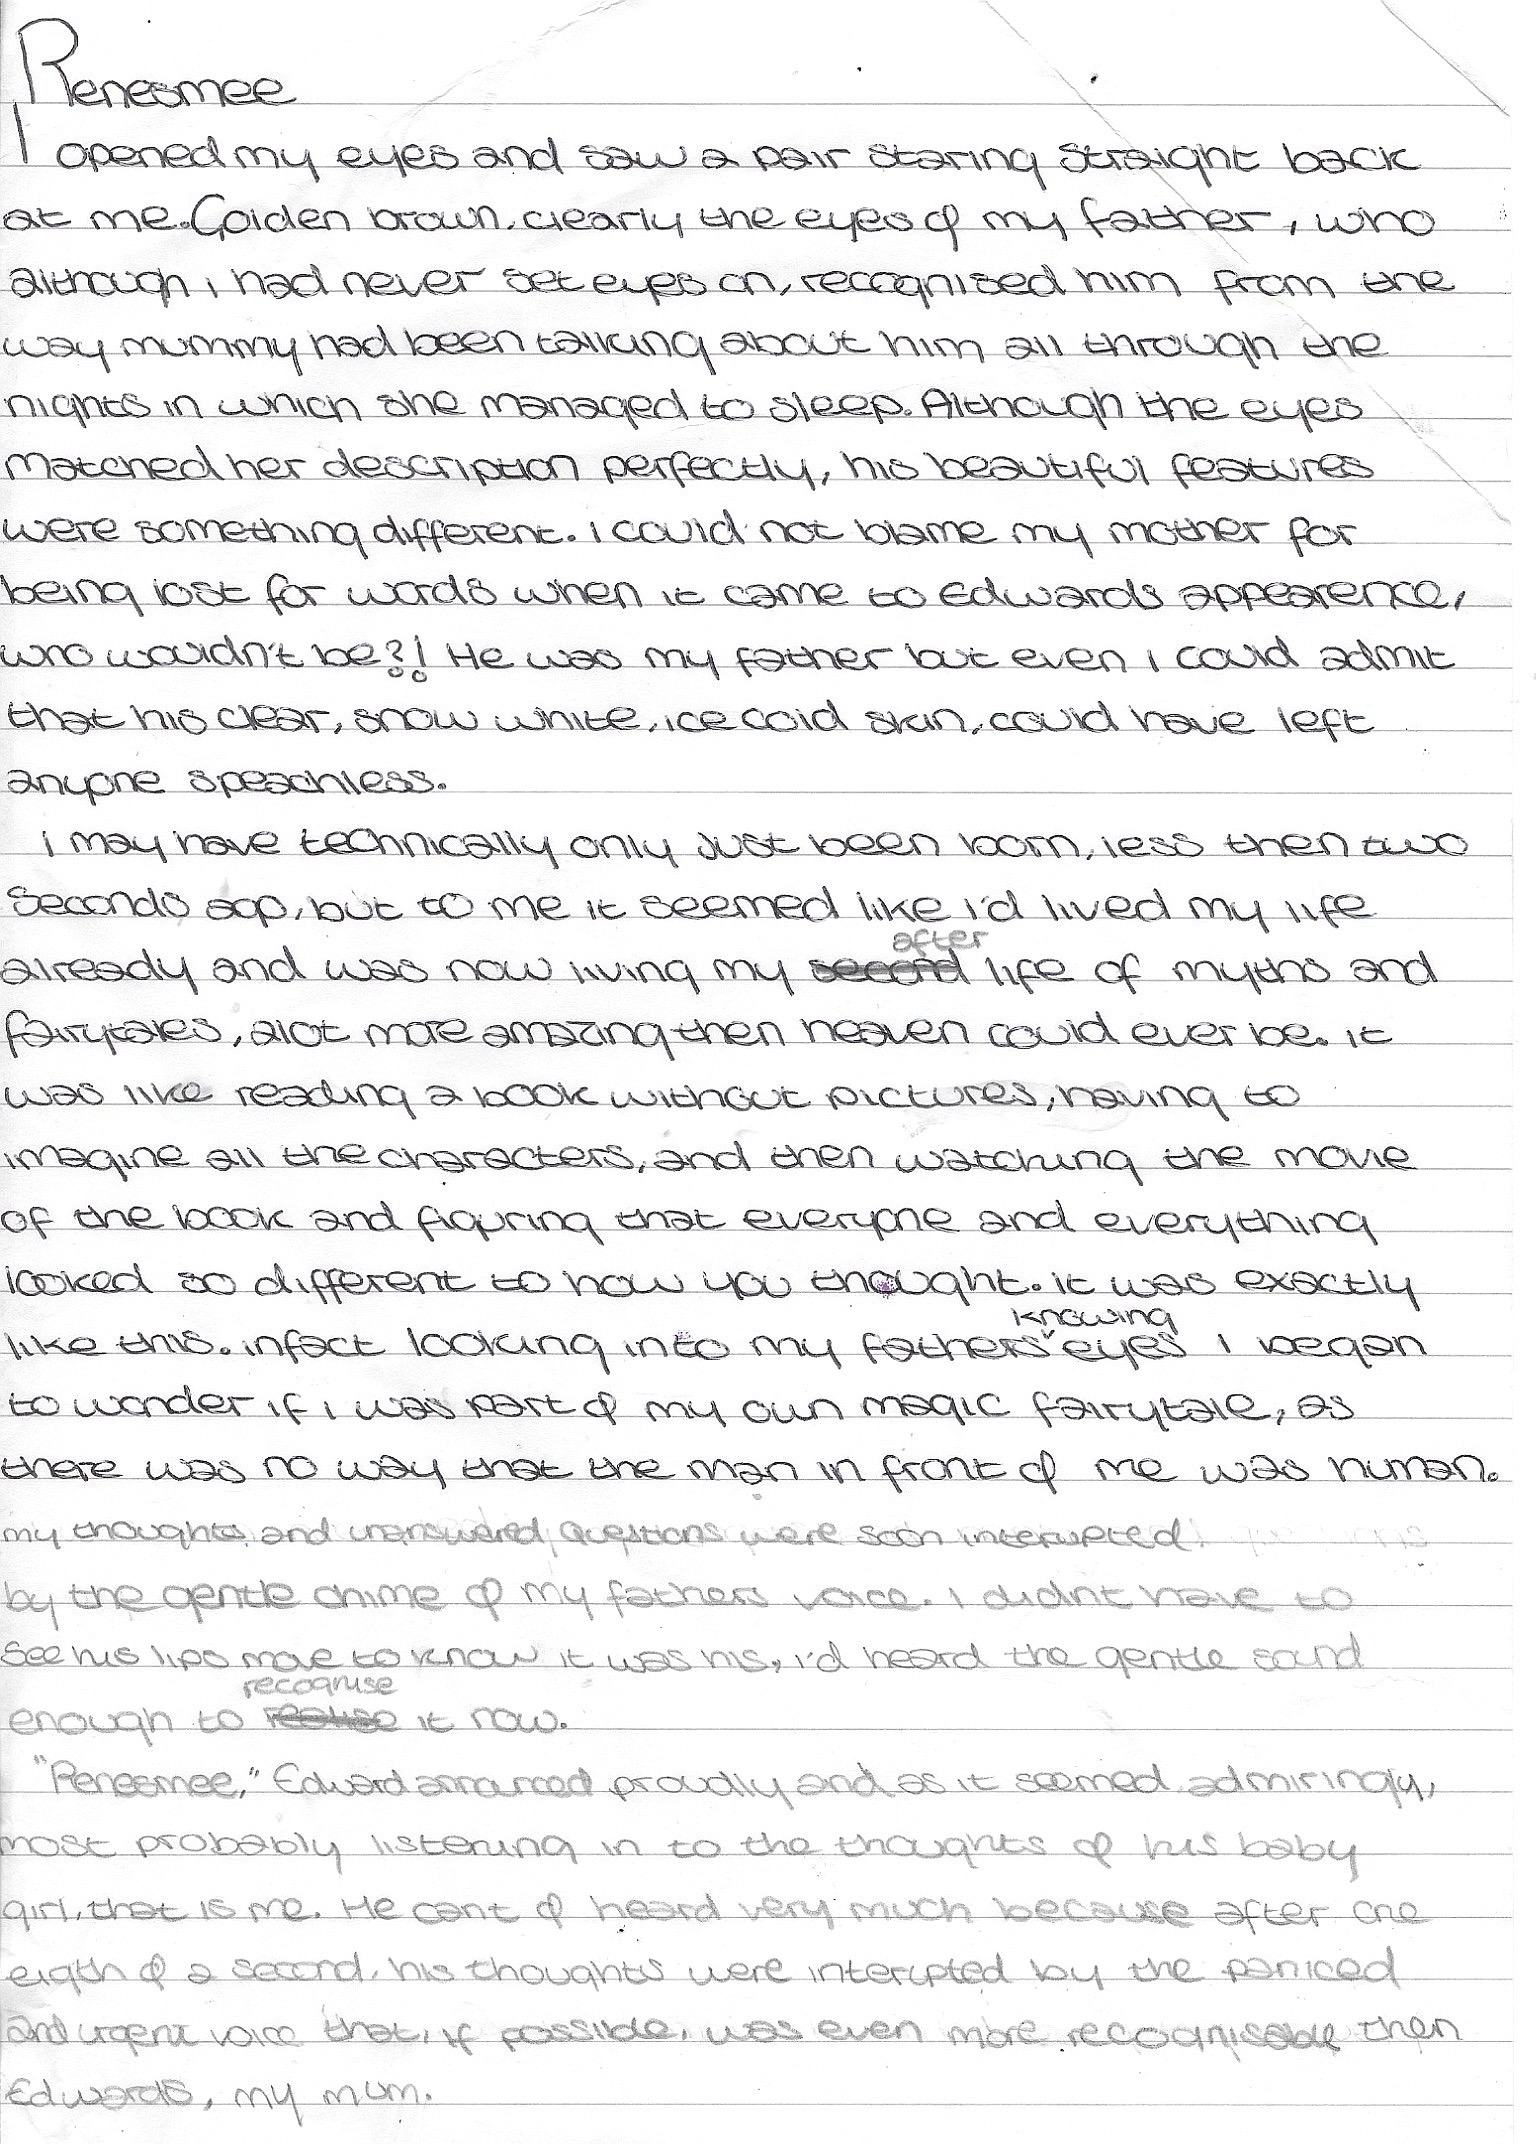 Renesmee
I opened my eyes and saw a pair staring straight back
at me. Golden brown, clearly the eyes of my father, who
although i had never set eyes on, recognised him from the
way mummy had been talking about him all through the
nights in which she managed to sleep. Although the eyes
matched her description perfectly, his beautiful features
were something different. i could not blame my mother for
being lost for words when it came to Edwards appearence,
who wouldn't be?! He was my father but even i could admit
that his clear, snow white, ice cold skin, could have left
anyone speachless.
i may have technically only just been born, less then two
seconds ago, but to me it seemed like i'd lived my life
after
already and was now living my second life of myths and
fairytales, alot more amazing then heaven could ever be. it
was like reading a book without pictures, having to
imagine all the characters, and then watching the movie
of the book and figuring that everyone and everything
looked so different to how you thought. it was exactly
knowing
like this. infact looking into my fathers eyes i began
to wonder if i was part of my own magic fairytale, as
there was no way that the man in front of me was human.
my thoughts and unanswered questions were soon interupted
by the gentle chime of my fathers voice. I didn't have to
see his lips move to know it was his, i'd heard the gentle sound
recognise
enough to realise it now.
"Renesmee," Edward announced proudly and as it seemed admiringly,
most probably listening in to the thoughts of his baby
girl, that is me. He cant of heard very much because after one
eigth of a second, his thoughts were interupted by the paniced
and urgent voice that, if possible, was even more recognisable then
Edwards, my mum.